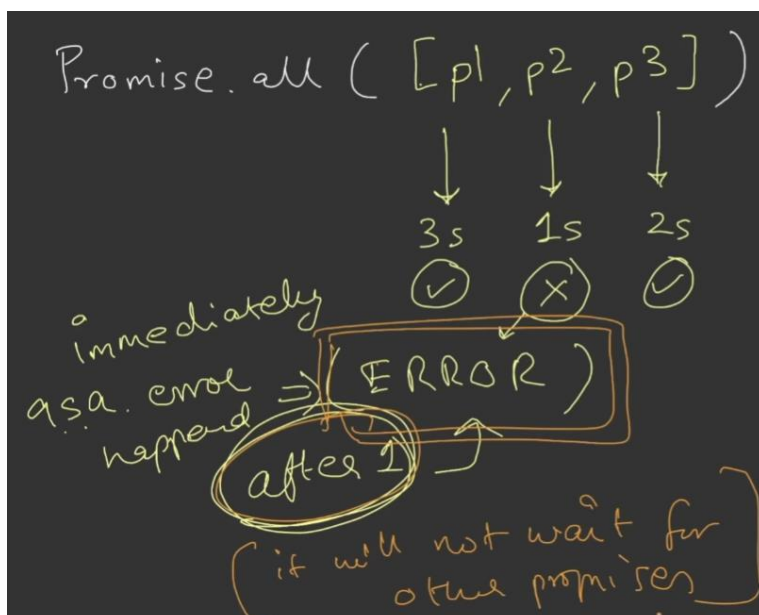 Promise.all ( [p1, p2, p3] )
3s 1s 2s
immediately
a.s.a. error
happend
(ERROR)
after 1
(it will not wait for
other promises)